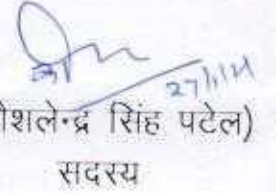 27/1/21
शलेन्द्र सिंह पटेल)
सदस्य